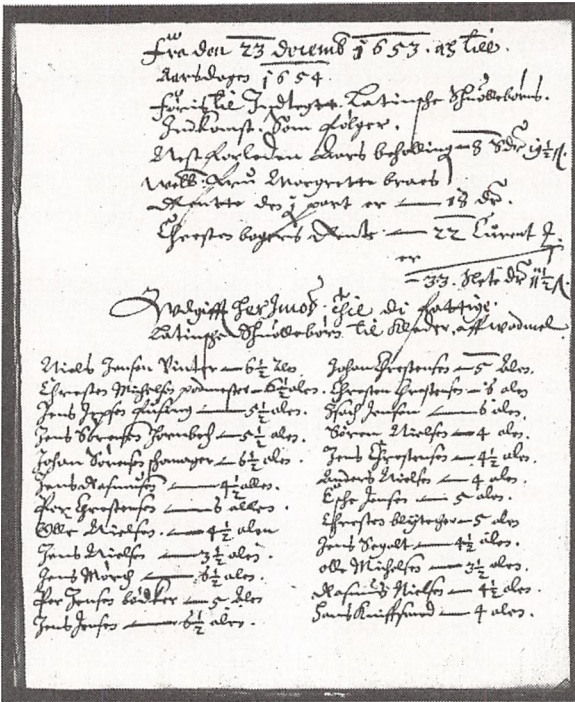 Fra den 23 decemb 1653. och till
Aarsdagen 1654.
Først til Indtegt Latinsche Schuolleborns.
Indkomst. Som følger.
Nest forleden Aars beholding 8 Sdr 19½ ß.
Welb: Fru Margrette braes
Rentte den part er — 18 dr.
Chresten Rente — 22 Curent
er
— 33. Slete dr 11½ ß.
Udgifft her Imod til di fattige
Latinsche Schuolleborn til Kleder, aff wodmel.
Niels Jensen Vinter — 6½ Alen
Chresten Michelsen — 6½ alen.
Jens — 5½ alen.
Jens Sørensen Hornbech — 5½ alen.
Johan Sørensen — 6½ alen
Jens Rasmusen — 4½ allen.
Per Chrestensen — 6 allen.
Olle Nielsen — 4½ alen
Jens Nielsen — 3½ alen.
Jens Mørch — 6½ alen.
Per Jensen bødker — 5 Alen
Jens Jensen — 6½ alen.
Johan Chrestensen — 5 Alen.
Chresten Chrestensen — alen
Jensen — 6 alen
Søren Nielsen — 4 alen.
Jens Chrestensen — 4½ alen.
Anders Nielsen — 4 alen.
Jensen — 5 alen.
Chresten — 5 alen
Jens Segalt — 4½ alen.
olle Michelsen — 3½ alen.
Rasmus Nielsen — 4½ alen.
Hans — 4 alen.